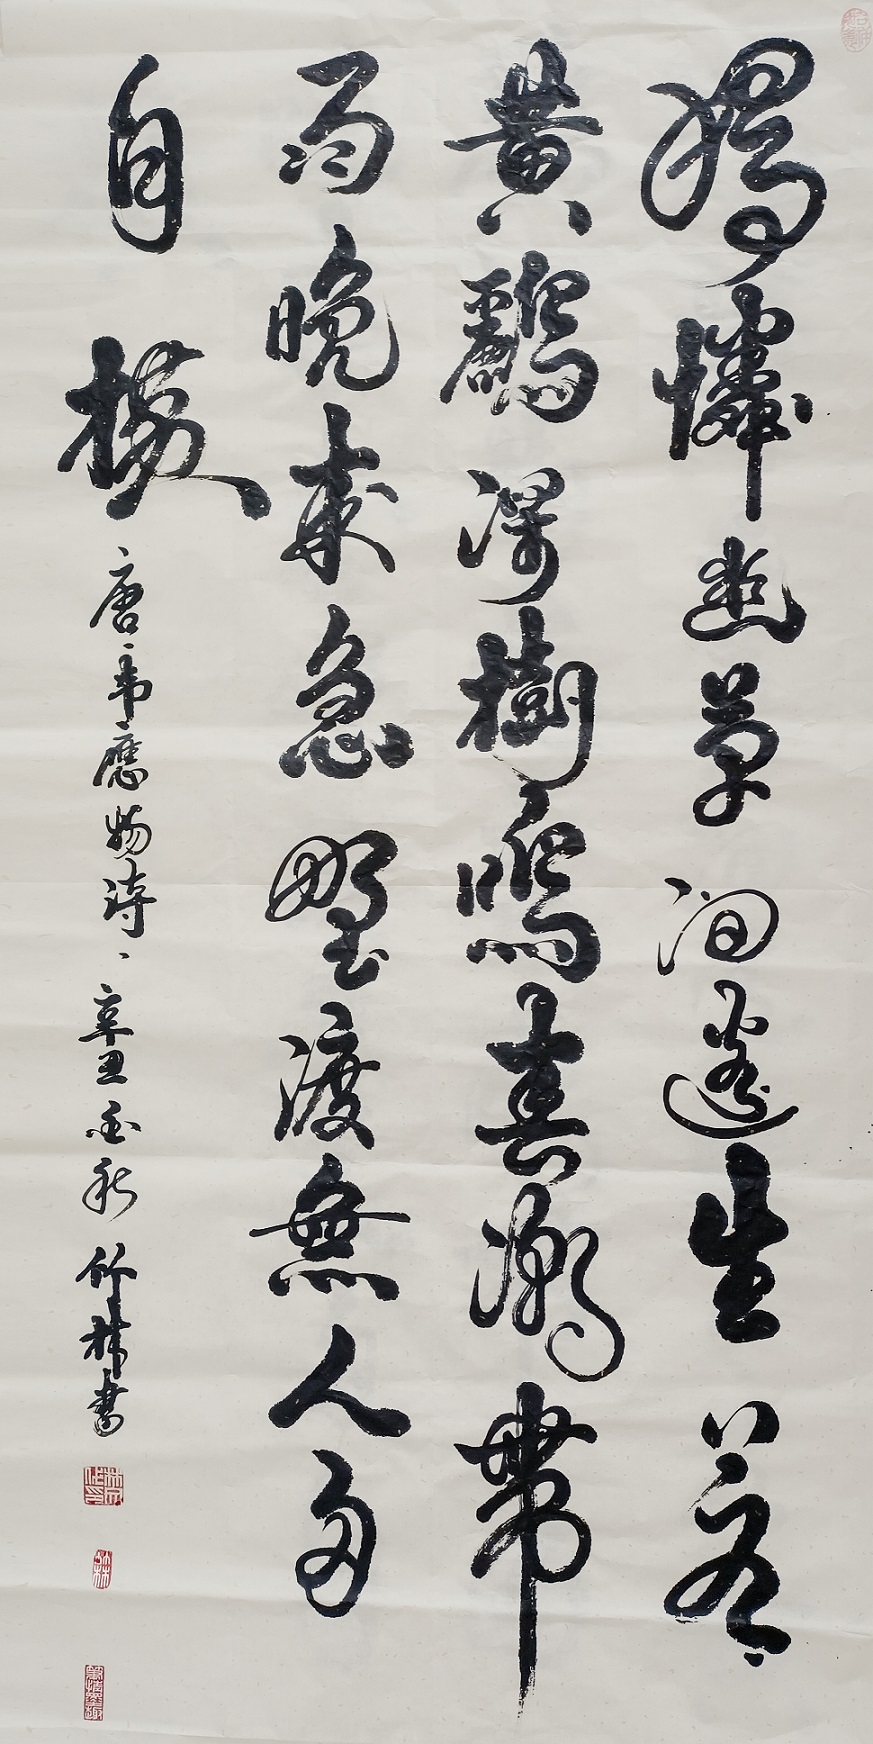 獨憐幽草澗邊生上有
黃鸝深樹鳴春潮帶
雨晚來急野渡無人舟
自橫
唐、韋應物詩、辛丑金秋竹林書
竹林